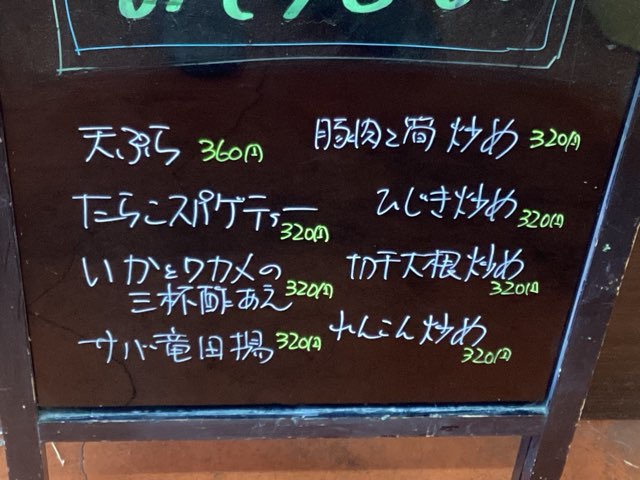 天ぷら 360円
たらこスパゲティー
320円
いかとワカメの
三杯酢あえ 320円
サバ竜田揚 320円
豚肉と筍 炒め 320円
ひじき炒め 320円
切干大根炒め
320円
れんこん炒め
320円